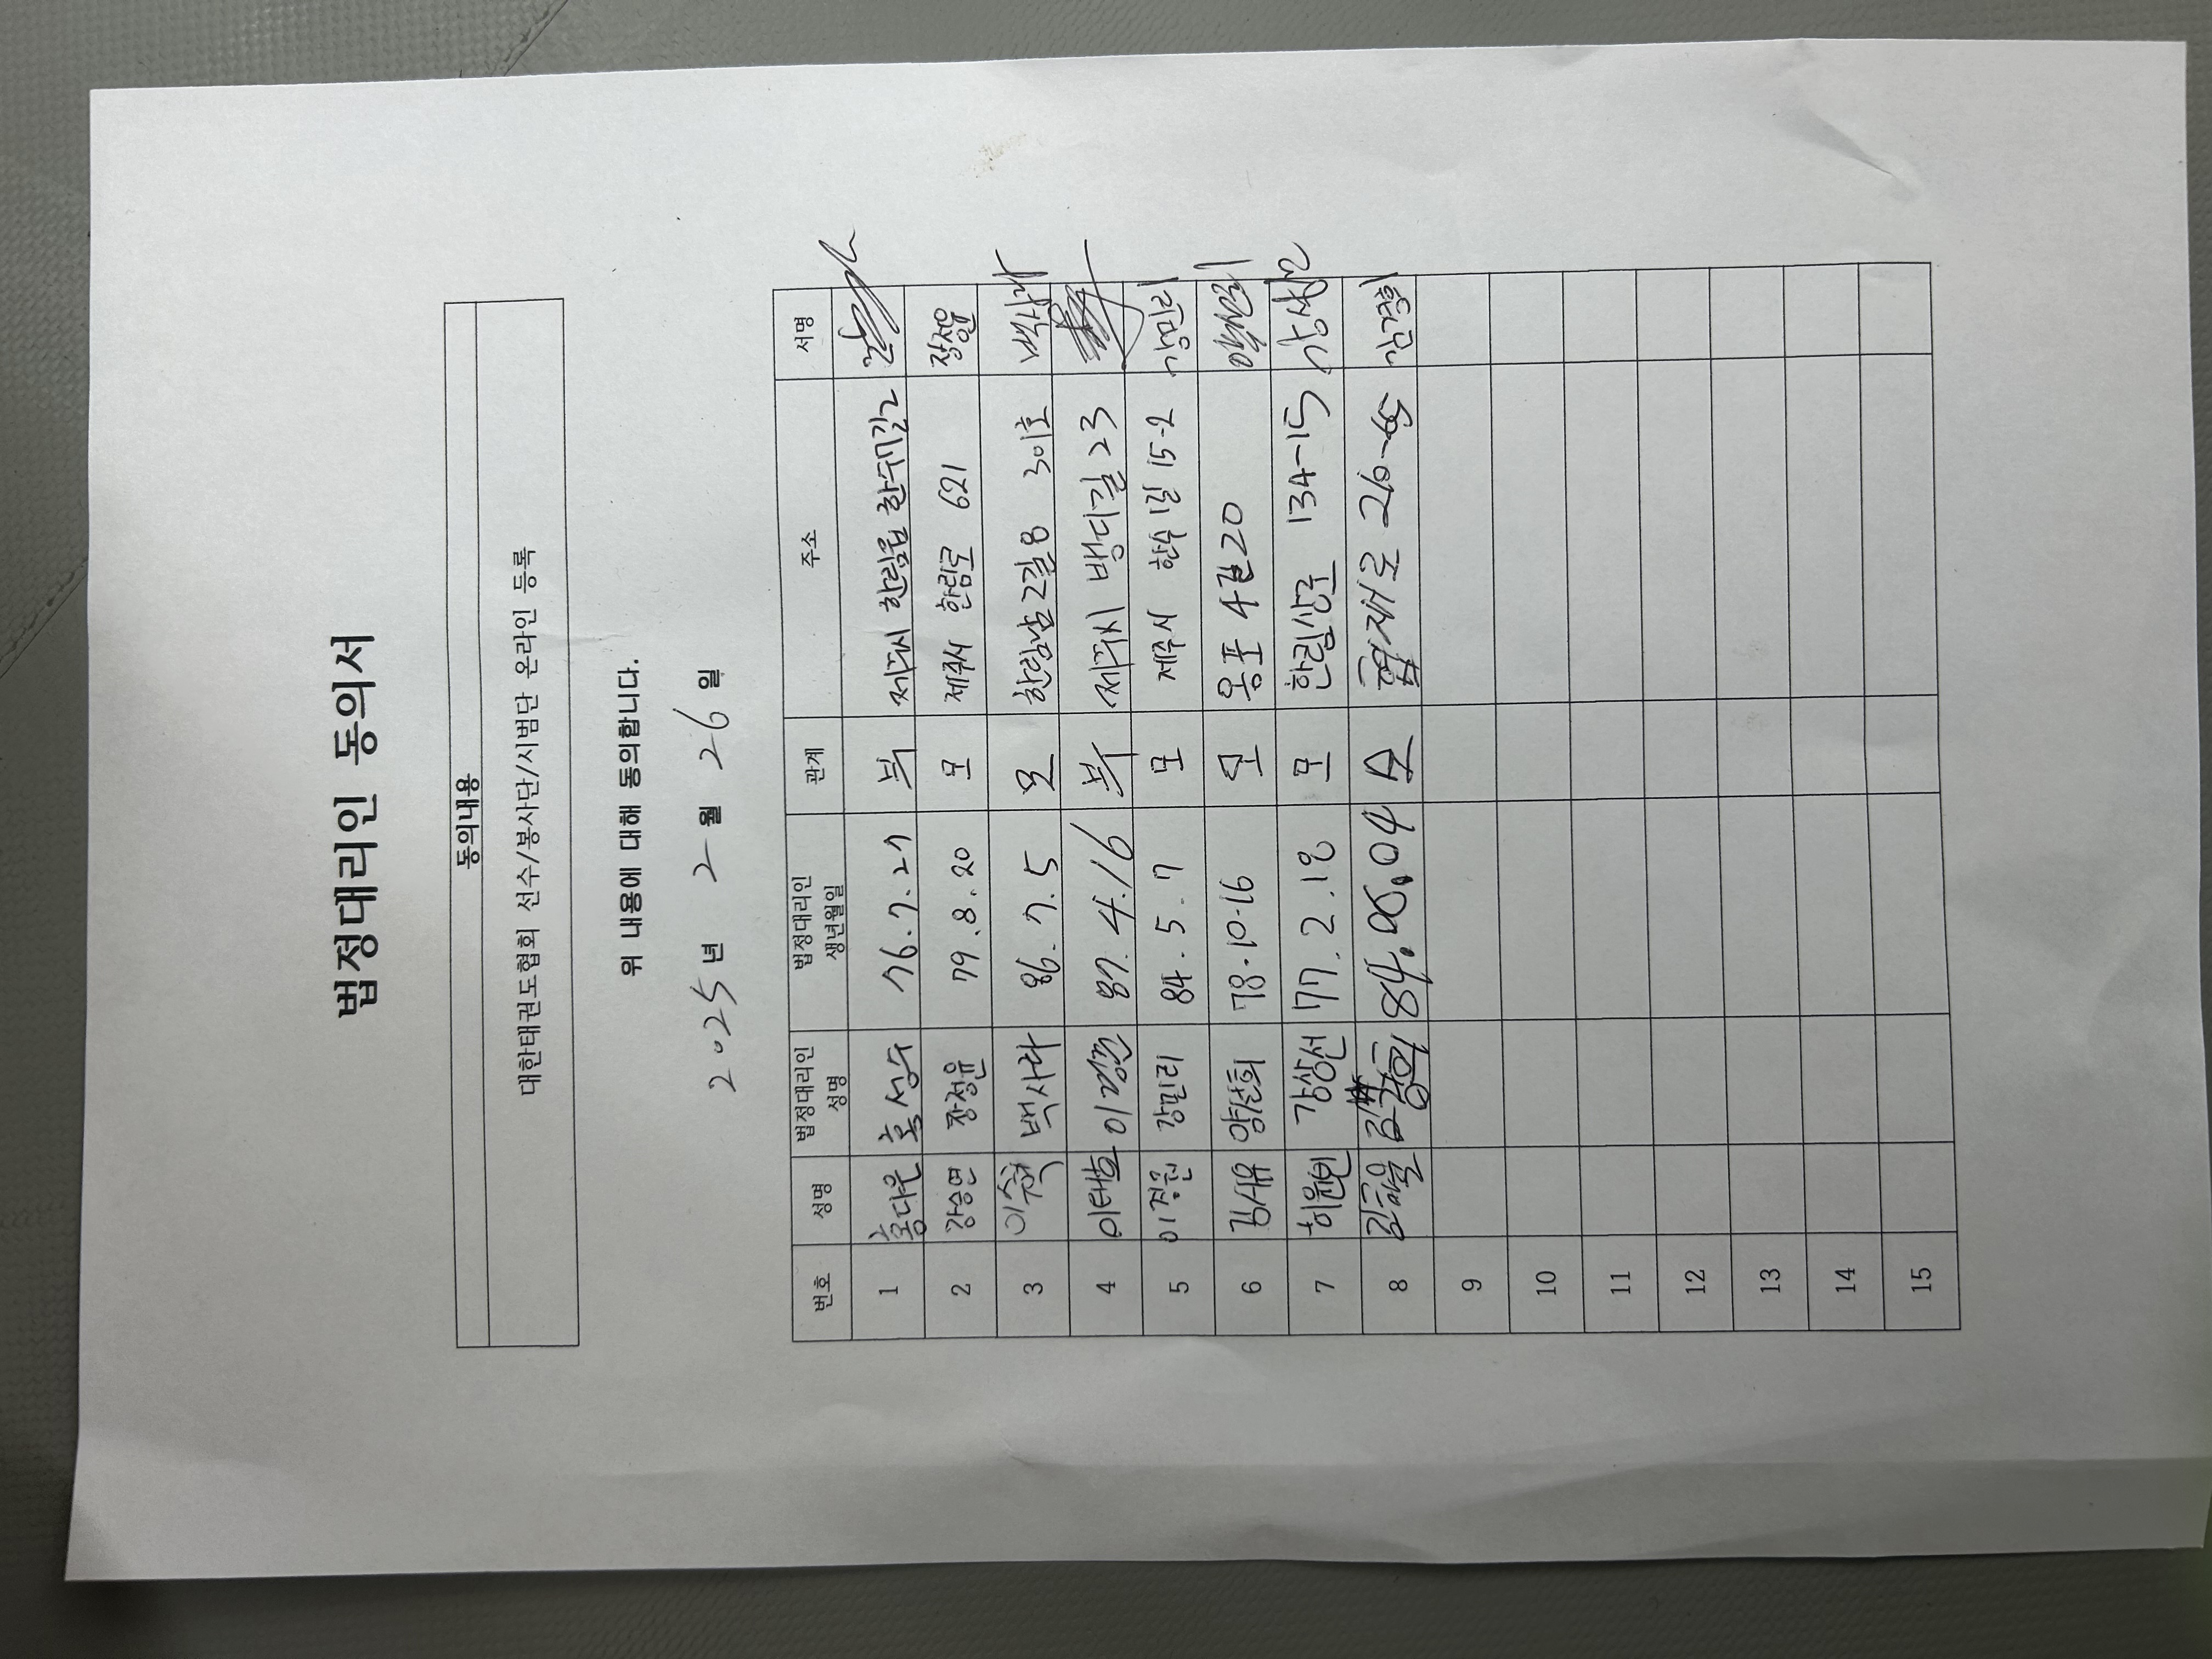 법정대리인 동의서
동의내용
대한태권도협회 선수/봉사단/시범단 온라인 등록
위 내용에 대해 동의합니다.
2025년 2월 26일
번호 성명 법정대리인 성명 법정대리인 생년월일 관계 주소 서명
1 홍다은 홍성수 76.7.27 부 제주시 한림읍 한수기길2
2 강승연 장정윤 79.8.20 모 제주시 한림로 621 장정윤
3 백사라 86.7.5 모 한림남2길8 301호
4 이태호 87.4.16 부 제주시 뱅디길 23
5 이정원 강민리 84.5.7 모 제주시 한수1길 15-2 강민리
6 김서유 양선희 78.10.16 모 옹포4길20 양선희
7 강상선 77.2.18 모 한림상로 134-15 강상선
8 모
9
10
11
12
13
14
15